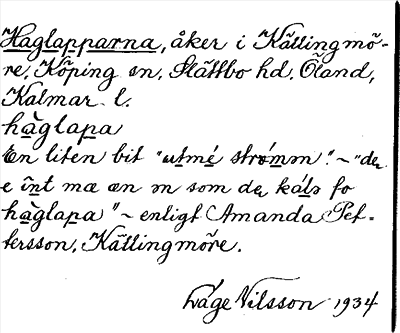 Haglapparna, åker i Källingmö-
re, Köping sn, Slättbo hd, Öland,
Kalmar l.
hàglapa
En liten bit "utmé strǿmm". ~ "de
e int mæ æn m som de kálə fo
hàglapa" ~ enligt Amanda Pet-
tersson, Källingmöre.
Låge Nilsson 1934